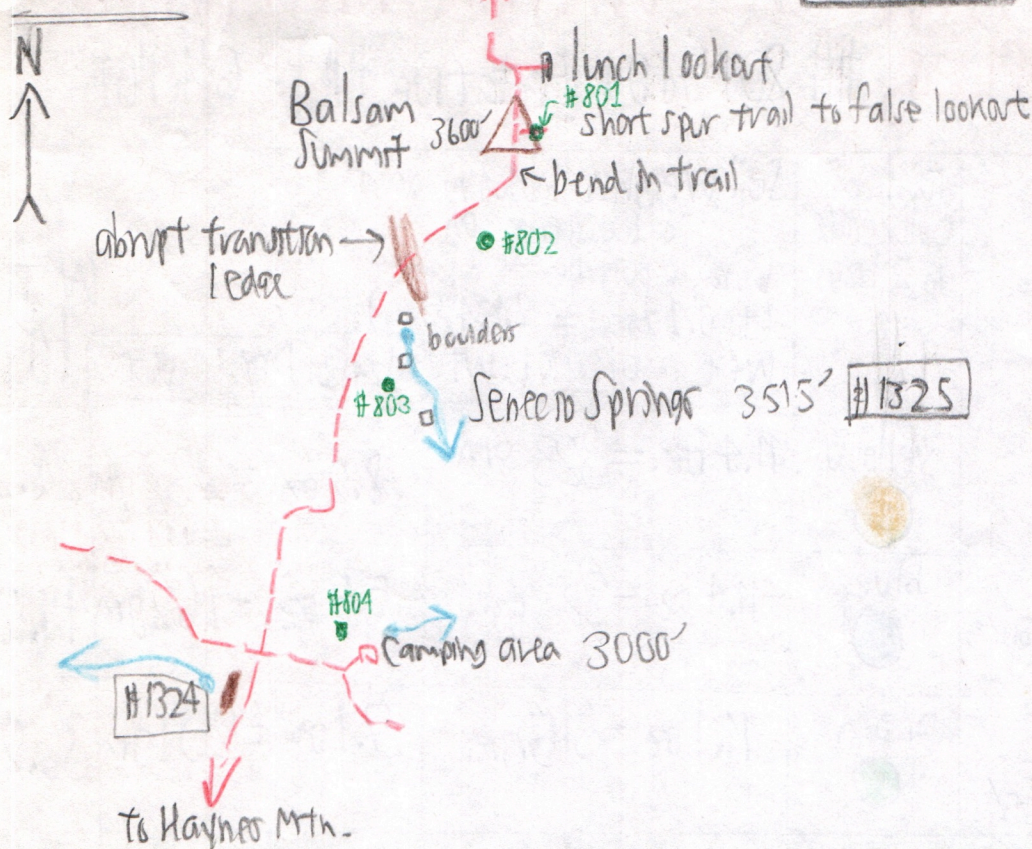 N
lunch lookout
#801
Balsam
Summit
3600'
short spur trail to false lookout
bend in trail
abrupt transition
ledge
#802
boulders
#803
Seneca Springs 3515' #1325
#804
Camping area 3000'
#1324
to Haynes Mtn.